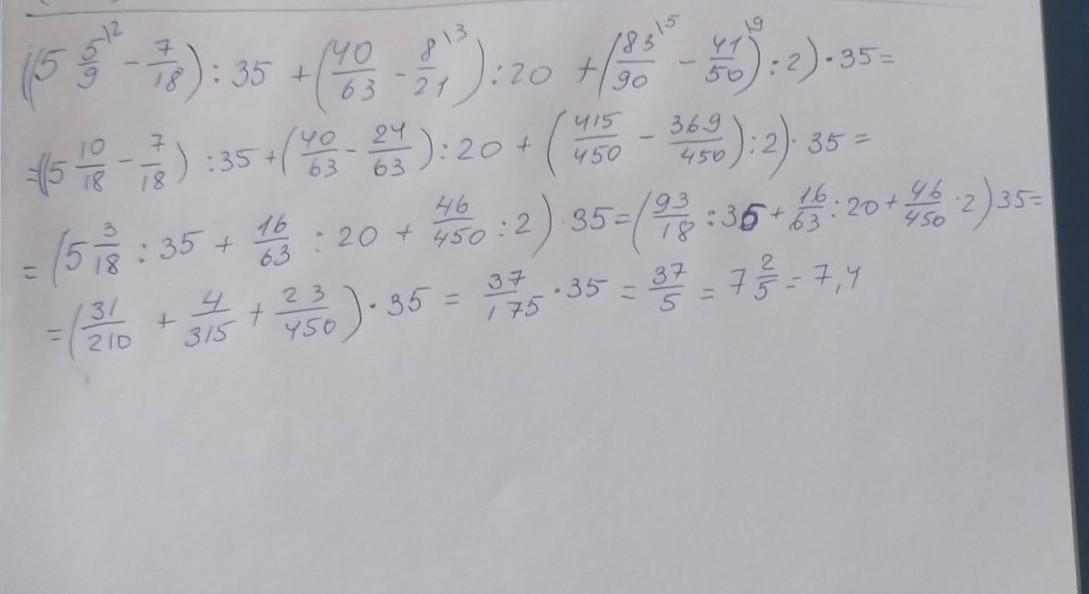 ((5 5/9\2 - 7/18) : 35 + (40/63 - 8/21\3) : 20 + (83/90\5 - 41/50\9) : 2) · 35 =
= ((5 10/18 - 7/18) : 35 + (40/63 - 24/63) : 20 + (415/450 - 369/450) : 2) · 35 =
= (5 3/18 : 35 + 16/63 : 20 + 46/450 : 2) · 35 = (93/18 : 35 + 16/63 : 20 + 46/450 · 2) 35 =
= (31/210 + 4/315 + 23/450) · 35 = 37/175 · 35 = 37/5 = 7 2/5 = 7,4